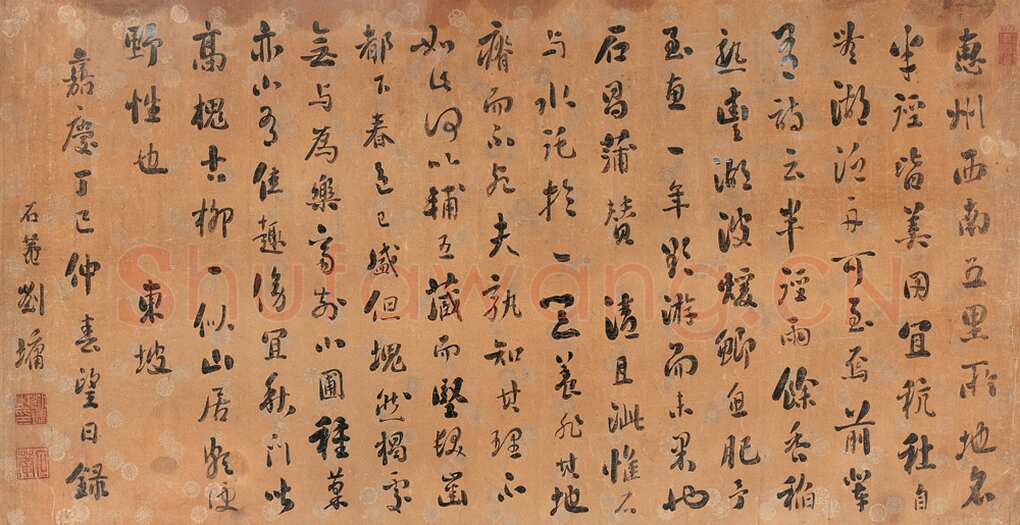 惠州西南五里所地名
半徑皆美田宜秔秫自
豐湖泛舟可至焉前輩
有詩云半徑雨餘香稻
熟豐湖波煖鯽魚肥予
至惠一年欲游而未果也
石昌蒲贊 清且泚惟石
与水託於一器養非其地
瘠而不死夫孰知其理不
如此何以輔五藏而堅髮齒
都下春色已盛但塊然獨處
無与為樂齋前小圃種菜
亦小有佳趣傍宜秋門皆
高槐古柳一似山居頗便
野性也 東坡
嘉慶丁巳仲春望日錄
石菴劉墉
Shufawang.CN